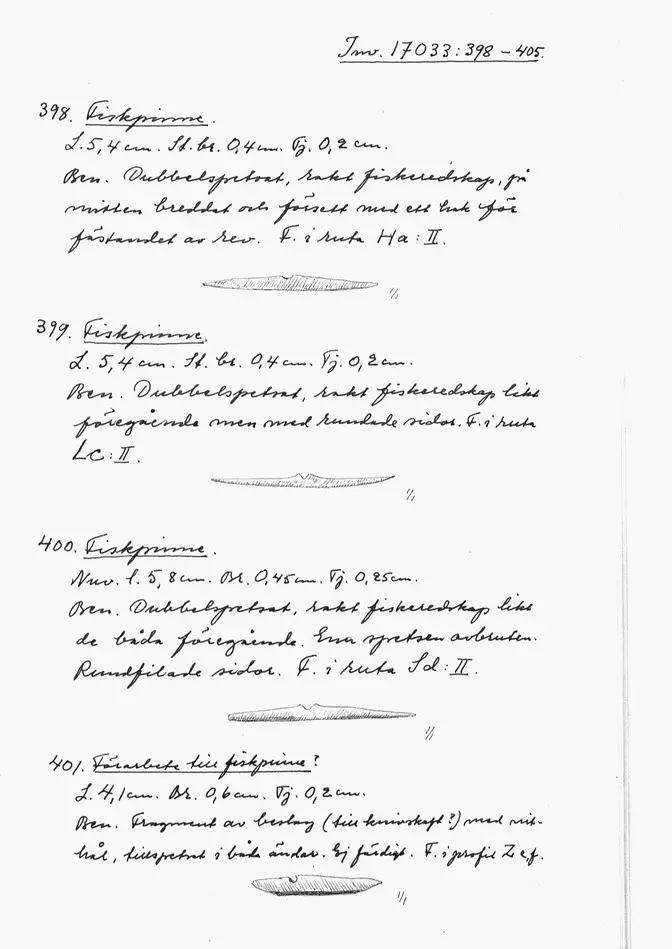 Inv. 17033:398 – 405.
398. Fiskpinne.
L. 5,4 cm. St. br. 0,4 cm. Tj. 0,2 cm.
Ben. Dubbelspetsat, rakt fiskeredskap, på
mitten breddat och försett med ett hak för
fästandet av rev. F. i ruta Ha: II.
1/1
399. Fiskpinne.
L. 5,4 cm. St. br. 0,4 cm. Tj. 0,2 cm.
Ben. Dubbelspetsat, rakt fiskeredskap likt
föregående men med rundade sidor. F. i ruta
Lc: II.
1/1
400. Fiskpinne.
Nuv. l. 5,8 cm. Br. 0,45 cm. Tj. 0,25 cm.
Ben. Dubbelspetsat, rakt fiskeredskap likt
de båda föregående. Ena spetsen avbruten.
Rundfilade sidor. F. i ruta Sd: II.
1/1
401. Förarbete till fiskpinne?
L. 4,1 cm. Br. 0,6 cm. Tj. 0,2 cm.
Ben. Fragment av beslag (till knivskaft?) med nit-
hål, tillspetsat i båda ändar. Ej färdigt. F. i profil Z e.f.
1/1